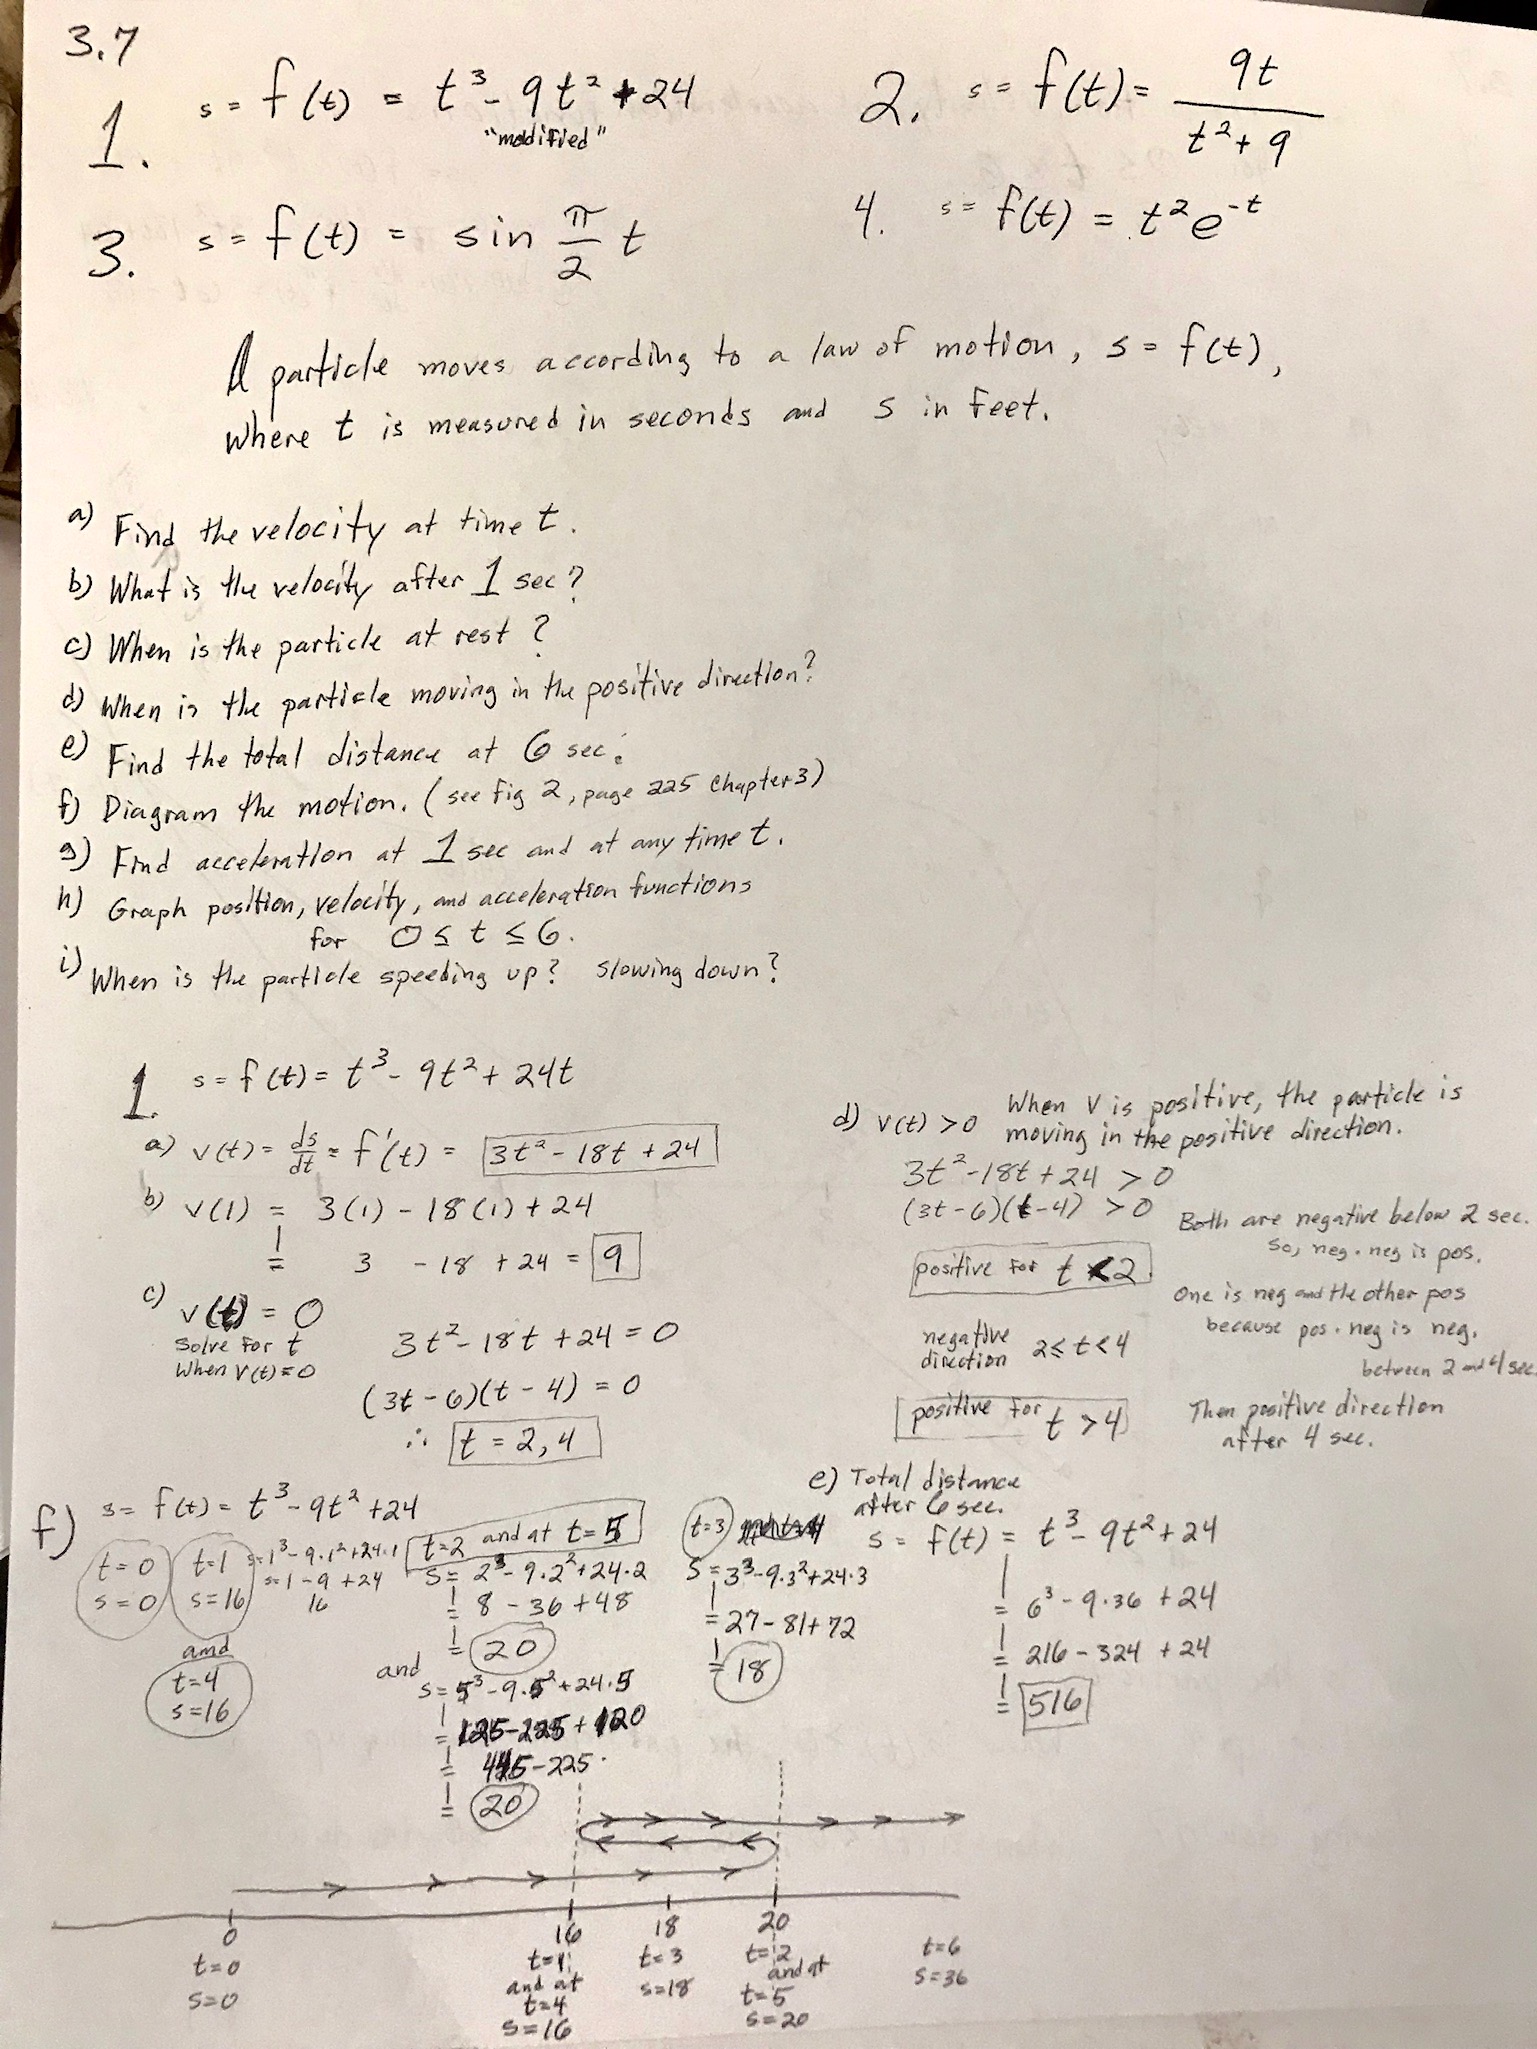 3.7
1. s = f(t) = t³ - 9t² + 24
"modified"
2. s = f(t) = 9t / t² + 9
3. s = f(t) = sin π/2 t
4. s = f(t) = t²e^-t
A particle moves according to a law of motion, s = f(t),
where t is measured in seconds and s in feet.
a) Find the velocity at time t.
b) What is the velocity after 1 sec?
c) When is the particle at rest?
d) When is the particle moving in the positive direction?
e) Find the total distance at 6 sec.
f) Diagram the motion. (see fig 2, page 225 Chapter 3)
g) Find acceleration at 1 sec and at any time t.
h) Graph position, velocity, and acceleration functions
for 0 ≤ t ≤ 6.
i) When is the particle speeding up? slowing down?
1. s = f(t) = t³ - 9t² + 24t
a) v(t) = ds/dt = f'(t) = 3t² - 18t + 24
b) v(1) = 3(1) - 18(1) + 24
= 3 - 18 + 24 = 9
c) v(t) = 0
Solve for t
When v(t) = 0
3t² - 18t + 24 = 0
(3t - 6)(t - 4) = 0
∴ t = 2, 4
d) v(t) > 0 When V is positive, the particle is
moving in the positive direction.
3t² - 18t + 24 > 0
(3t - 6)(t - 4) > 0
Both are negative below 2 sec.
So, neg · neg is pos.
positive for t < 2
One is neg and the other pos
because pos · neg is neg.
between 2 and 4 sec.
negative
direction 2 ≤ t < 4
positive for t > 4
Then positive direction
after 4 sec.
e) Total distance
after 6 sec.
s = f(t) = t³ - 9t² + 24
= 6³ - 9·36 + 24
= 216 - 324 + 24
= 516
f) s = f(t) = t³ - 9t² + 24
t = 0
s = 0
t=1
s = 16
s=1³ - 9·1² + 24·1
s=1 - 9 + 24
16
and
t=4
s=16
t=2 and at t=5
S = 2³ - 9·2² + 24·2
= 8 - 36 + 48
= 20
and
s = 5³ - 9·5² + 24·5
= 125 - 225 + 120
= 245 - 225
= 20
t=3
S = 3³ - 9·3² + 24·3
= 27 - 81 + 72
= 18
0
t=0
S=0
16
t=1
and at
t=4
S=16
18
t=3
s=18
20
t=2
and at
t=5
s=20
t=6
S=36